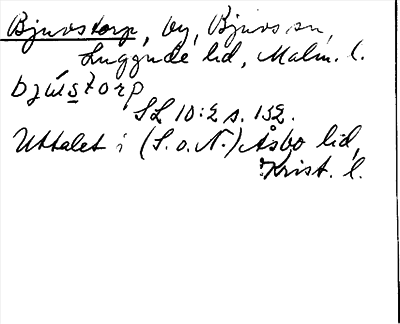 Bjuvstorp, by, Bjuvs sn,
Luggude hd, Malm. l.
bjústorp
SL 10:2 s. 132.
Uttalet i (S. o. N.) Åsbo hd,
Krist. l.